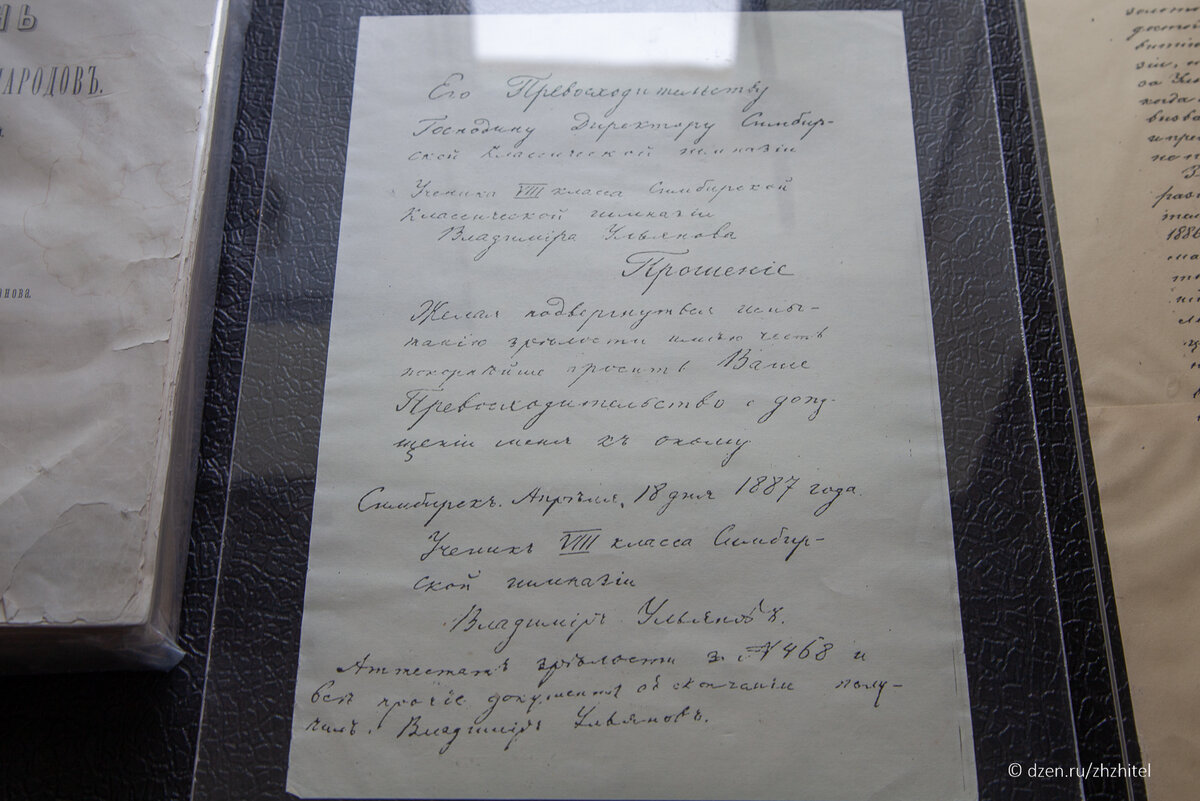 нъ
НАРОДОВЪ.
анова.
Его Превосходительству
Господину Директору Симбир-
ской Классической гимназіи
Ученика VIII класса Симбирской
Классической гимназіи
Владиміра Ульянова
Прошеніе
Желая подвергнуться испы-
танію зрѣлости имѣю честь
покорнѣйше просить Ваше
Превосходительство о допу-
щеніи меня къ оному
Симбирскъ. Апрѣля, 18 дня 1887 года.
Ученикъ VIII класса Симбир-
ской гимназіи
Владиміръ Ульяновъ.
Аттестатъ зрѣлости за № 468 и
всѣ прочіе документы об окончаніи полу-
чилъ. Владиміръ Ульяновъ.
когда
1886
© dzen.ru/zhzhitel